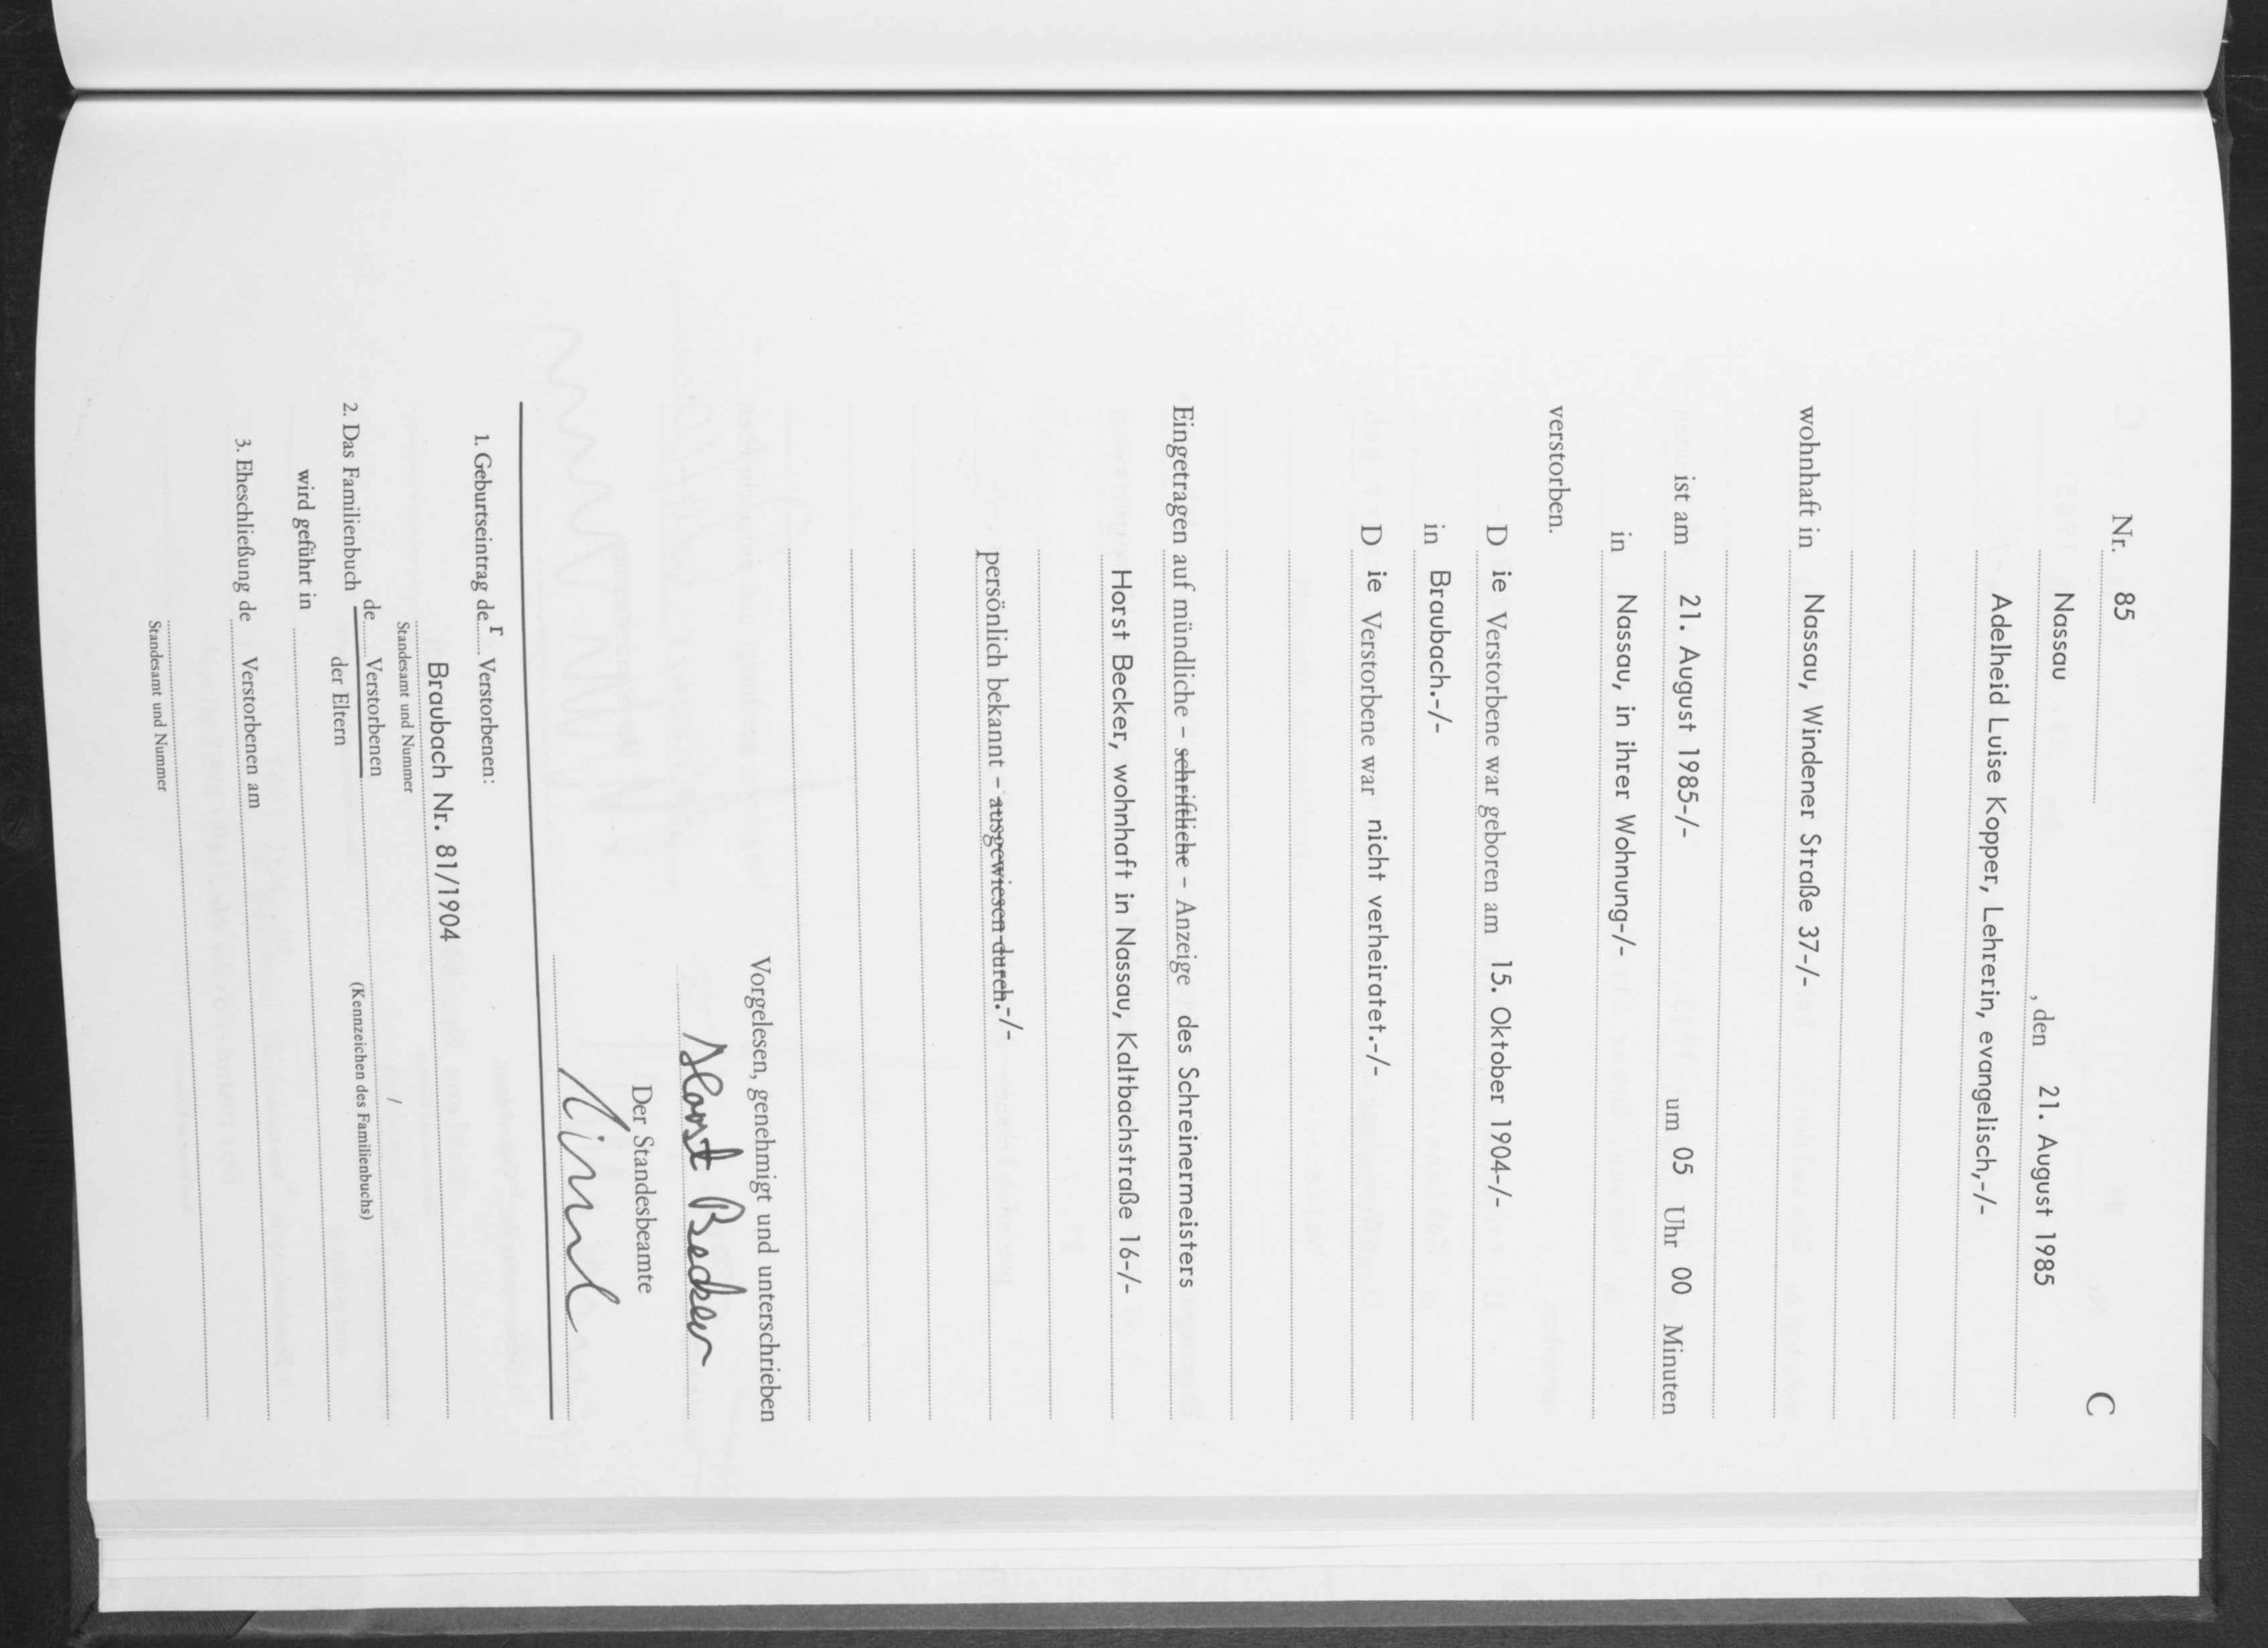 C
Nr. 85
Nassau, den 21. August 1985
Adelheid Luise Kopper, Lehrerin, evangelisch,-/-
wohnhaft in Nassau, Windener Straße 37-/-
ist am 21. August 1985-/- um 05 Uhr 00 Minuten
in Nassau, in ihrer Wohnung-/-
verstorben.
D ie Verstorbene war geboren am 15. Oktober 1904-/-
in Braubach.-/-
D ie Verstorbene war nicht verheiratet.-/-
Eingetragen auf mündliche - schriftliche - Anzeige des Schreinermeisters
Horst Becker, wohnhaft in Nassau, Kaltbachstraße 16-/-
persönlich bekannt - ausgewiesen durch.-/-
Vorgelesen, genehmigt und unterschrieben
Horst Becker
Der Standesbeamte
1. Geburtseintrag der Verstorbenen:
Braubach Nr. 81/1904
Standesamt und Nummer
de Verstorbenen /
2. Das Familienbuch
der Eltern (Kennzeichen des Familienbuchs)
wird geführt in
3. Eheschließung de Verstorbenen am
Standesamt und Nummer